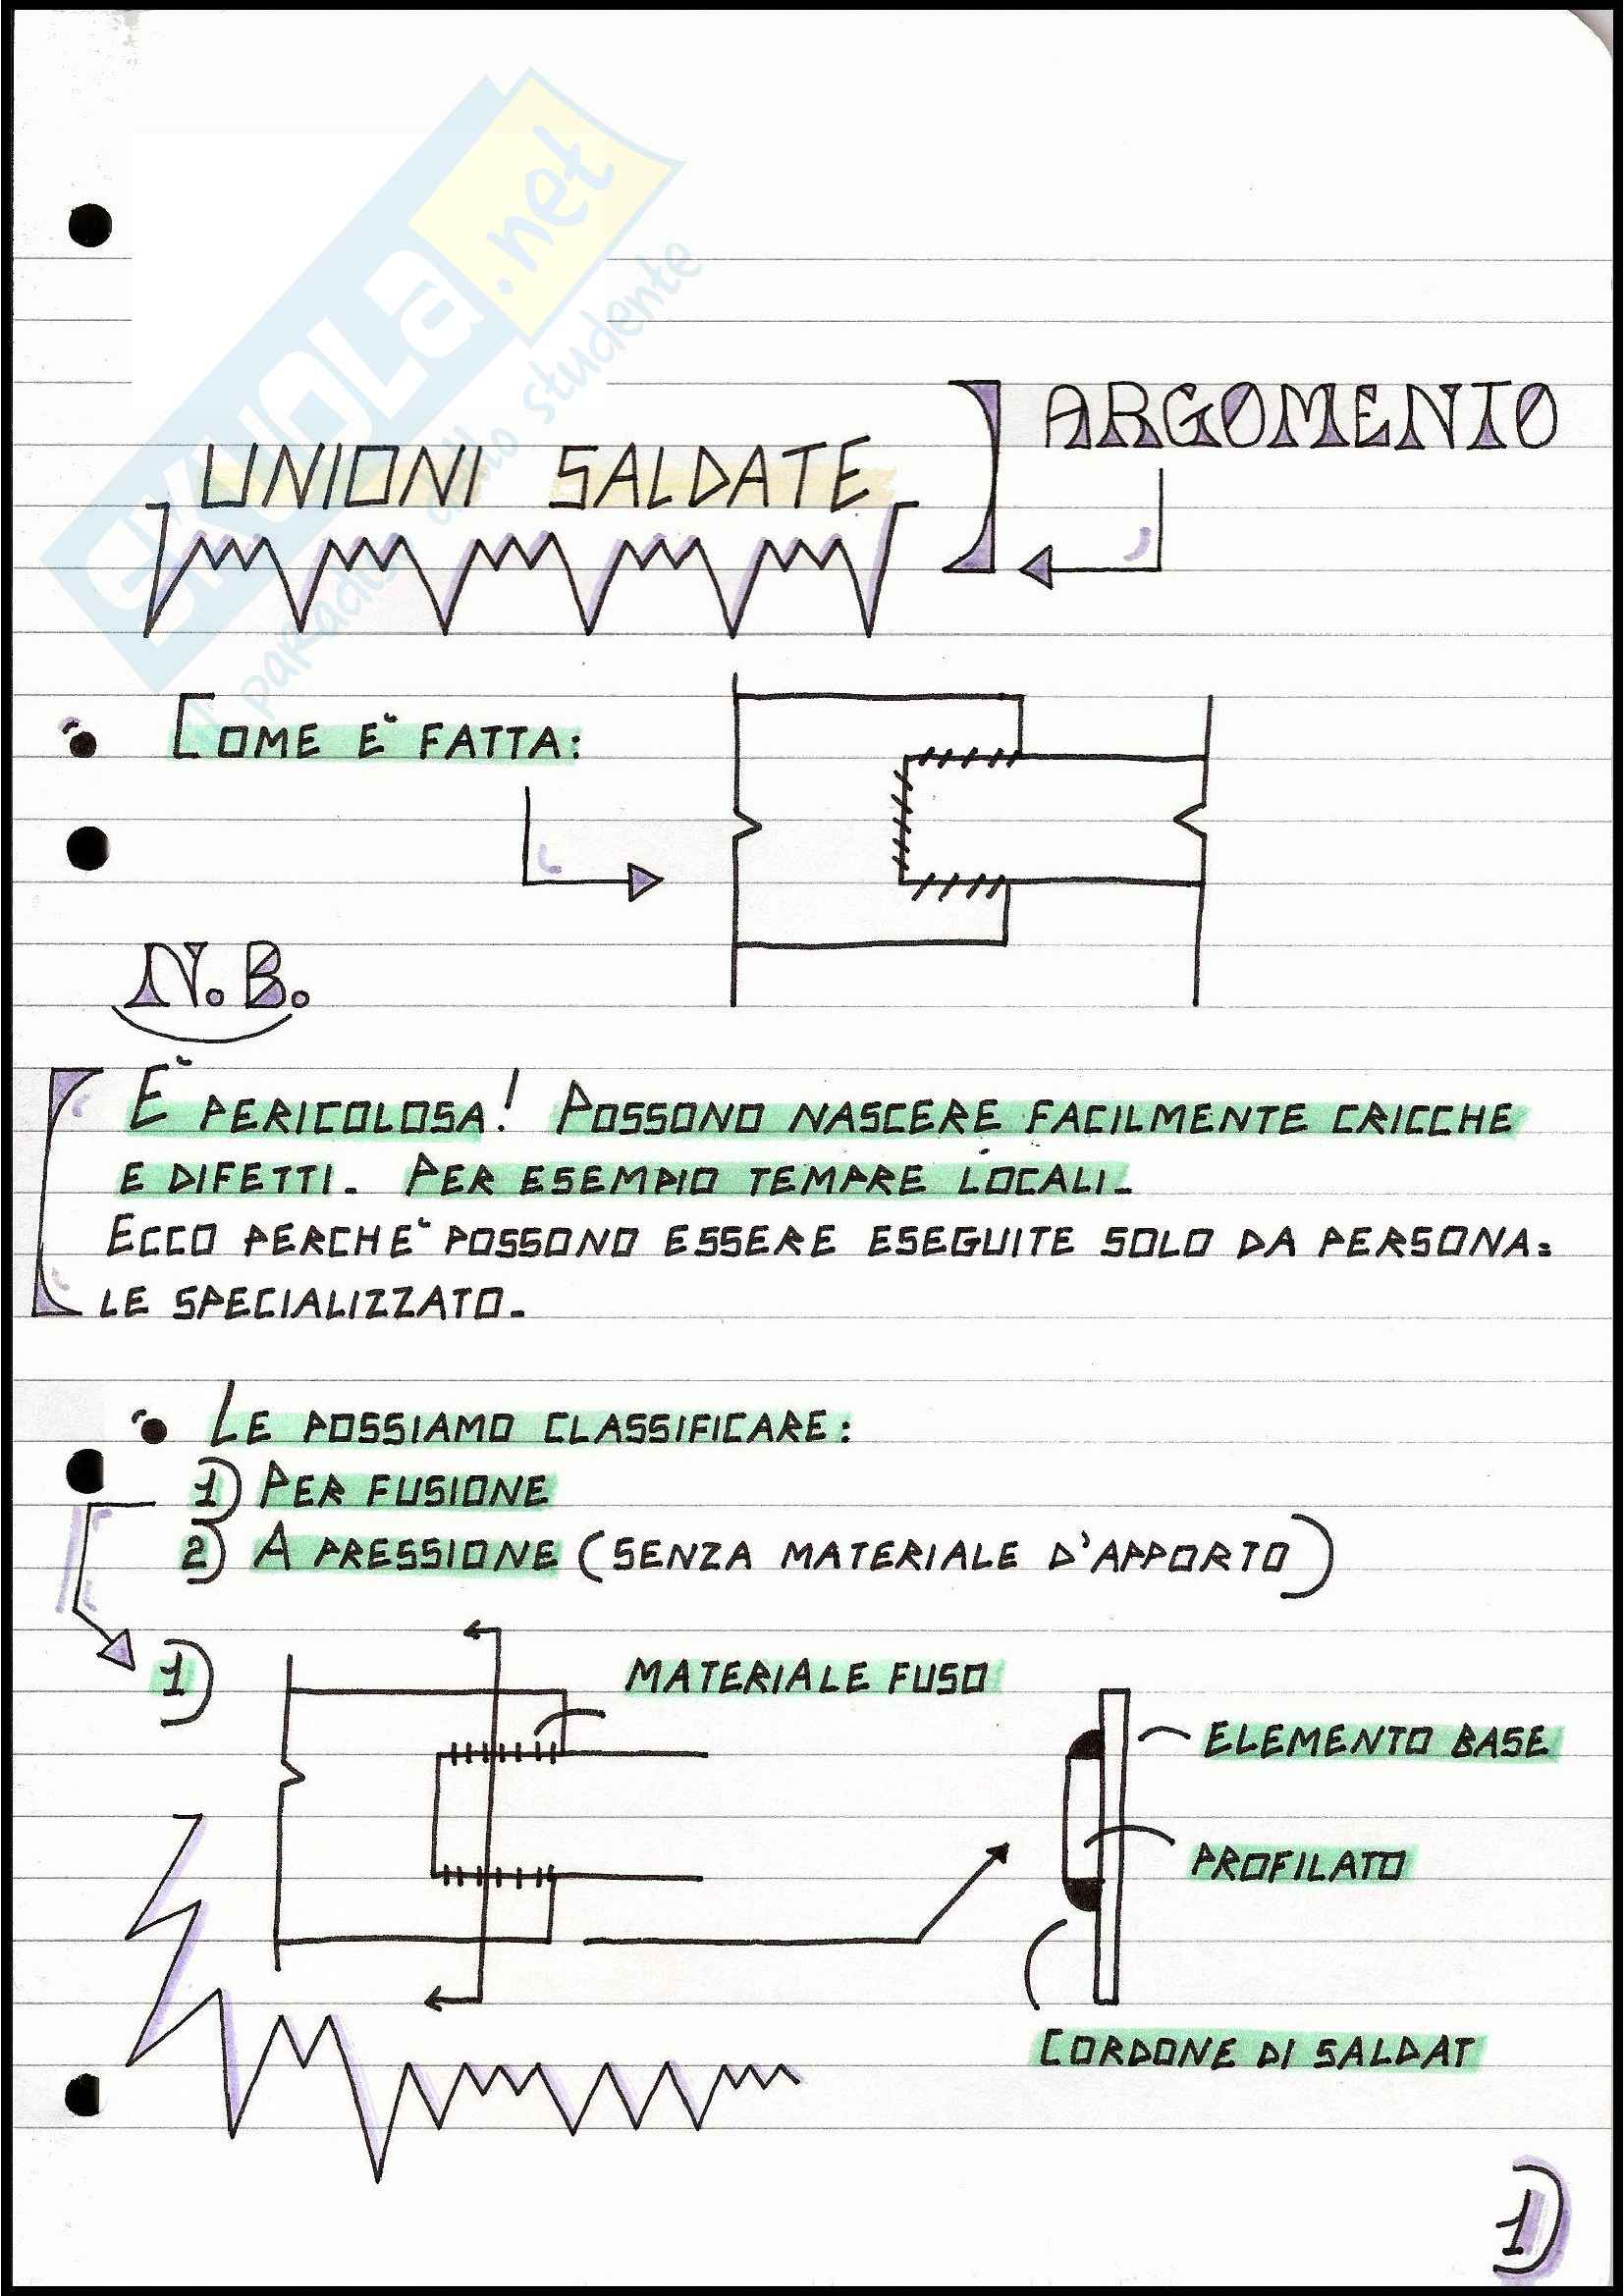 SKUOLA.net
il paradiso dello studente
ARGOMENTO
UNIONI SALDATE
COME E' FATTA:
N.B.
E' PERICOLOSA! POSSONO NASCERE FACILMENTE CRICCHE
E DIFETTI. PER ESEMPIO TEMPRE LOCALI.
ECCO PERCHE' POSSONO ESSERE ESEGUITE SOLO DA PERSONA=
LE SPECIALIZZATO.
LE POSSIAMO CLASSIFICARE:
1) PER FUSIONE
2) A PRESSIONE (SENZA MATERIALE D'APPORTO)
1)
MATERIALE FUSO
ELEMENTO BASE
PROFILATO
CORDONE DI SALDAT
1)